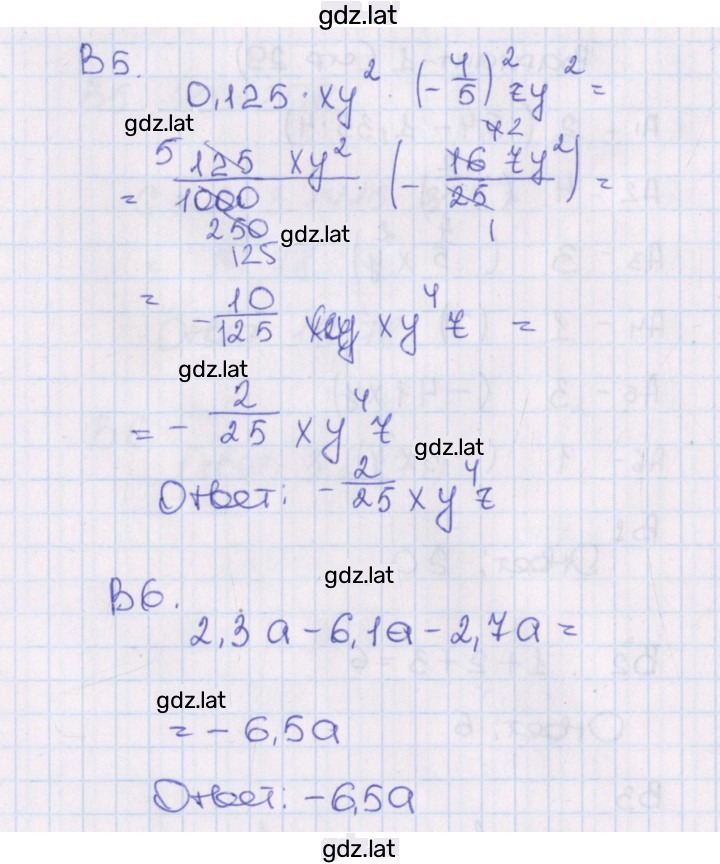 gdz.lat
B5.
0,125 · xy² · (-4/5)² zy² =
gdz.lat
= 5 125 xy² / 1000 250 125 · (- 16 2 zy² / 25 1) =
gdz.lat
= - 10/125 xy⁴ z =
gdz.lat
= - 2/25 xy⁴z
gdz.lat
Ответ: - 2/25 xy⁴z
gdz.lat
B6.
2,3a - 6,1a - 2,7a =
gdz.lat
= - 6,5a
Ответ: -6,5a
gdz.lat